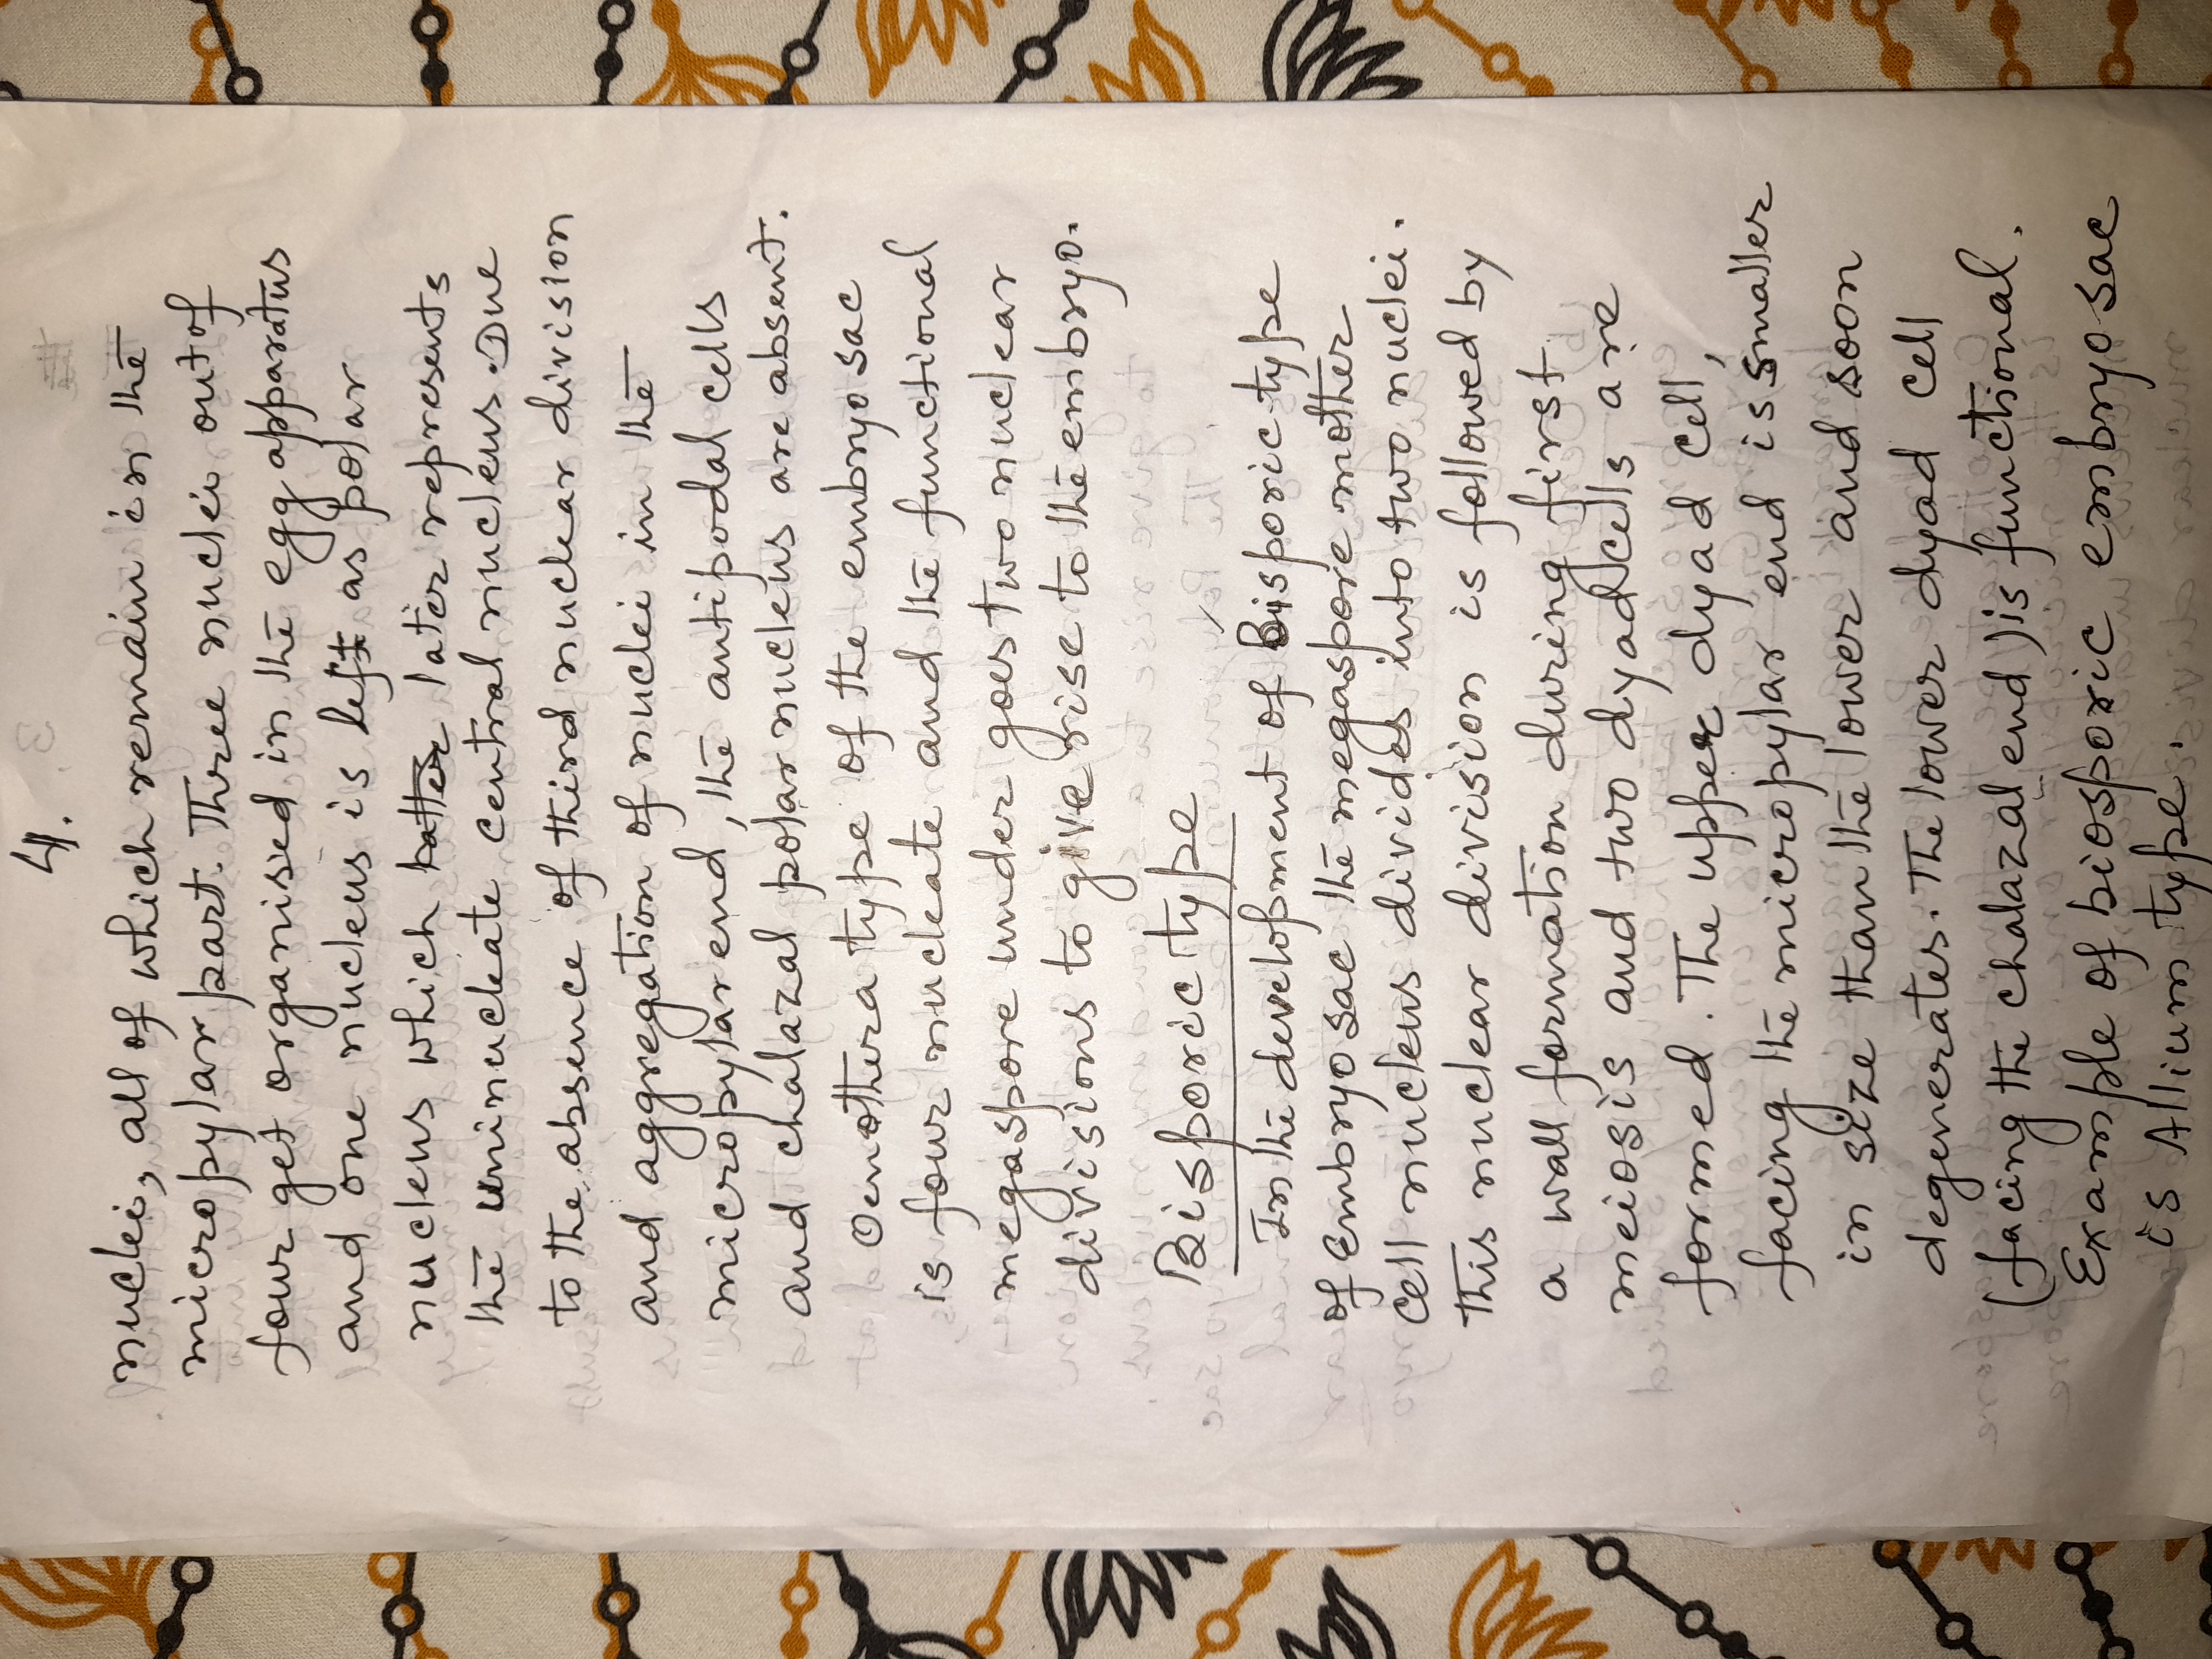 4.
nuclei, all of which remain in the
micropylar part. Three nuclei out of
four get organised in the egg apparatus
and one nucleus is left as polar
nucleus which later represents
the uninucleate central nucleus. Due
to the absence of third nuclear division
and aggregation of nuclei in the
micropylar end, the antipodal cells
and chalazal polar nucleus are absent.
Oenothera type of the embryo sac
is four nucleate and the functional
megaspore under goes two nuclear
divisions to give rise to the embryo.
Bisporic type
In the development of Bisporic type
of Embryo sac the megaspore mother
cell nucleus divides into two nuclei.
This nuclear division is followed by
a wall formation during first
meiosis and two dyad cells are
formed. The upper dyad cell,
facing the micropylar end is smaller
in size than the lower and soon
degenerates. The lower dyad cell
(facing the chalazal end) is functional.
Example of biosporic embryo sac
is Allium type.